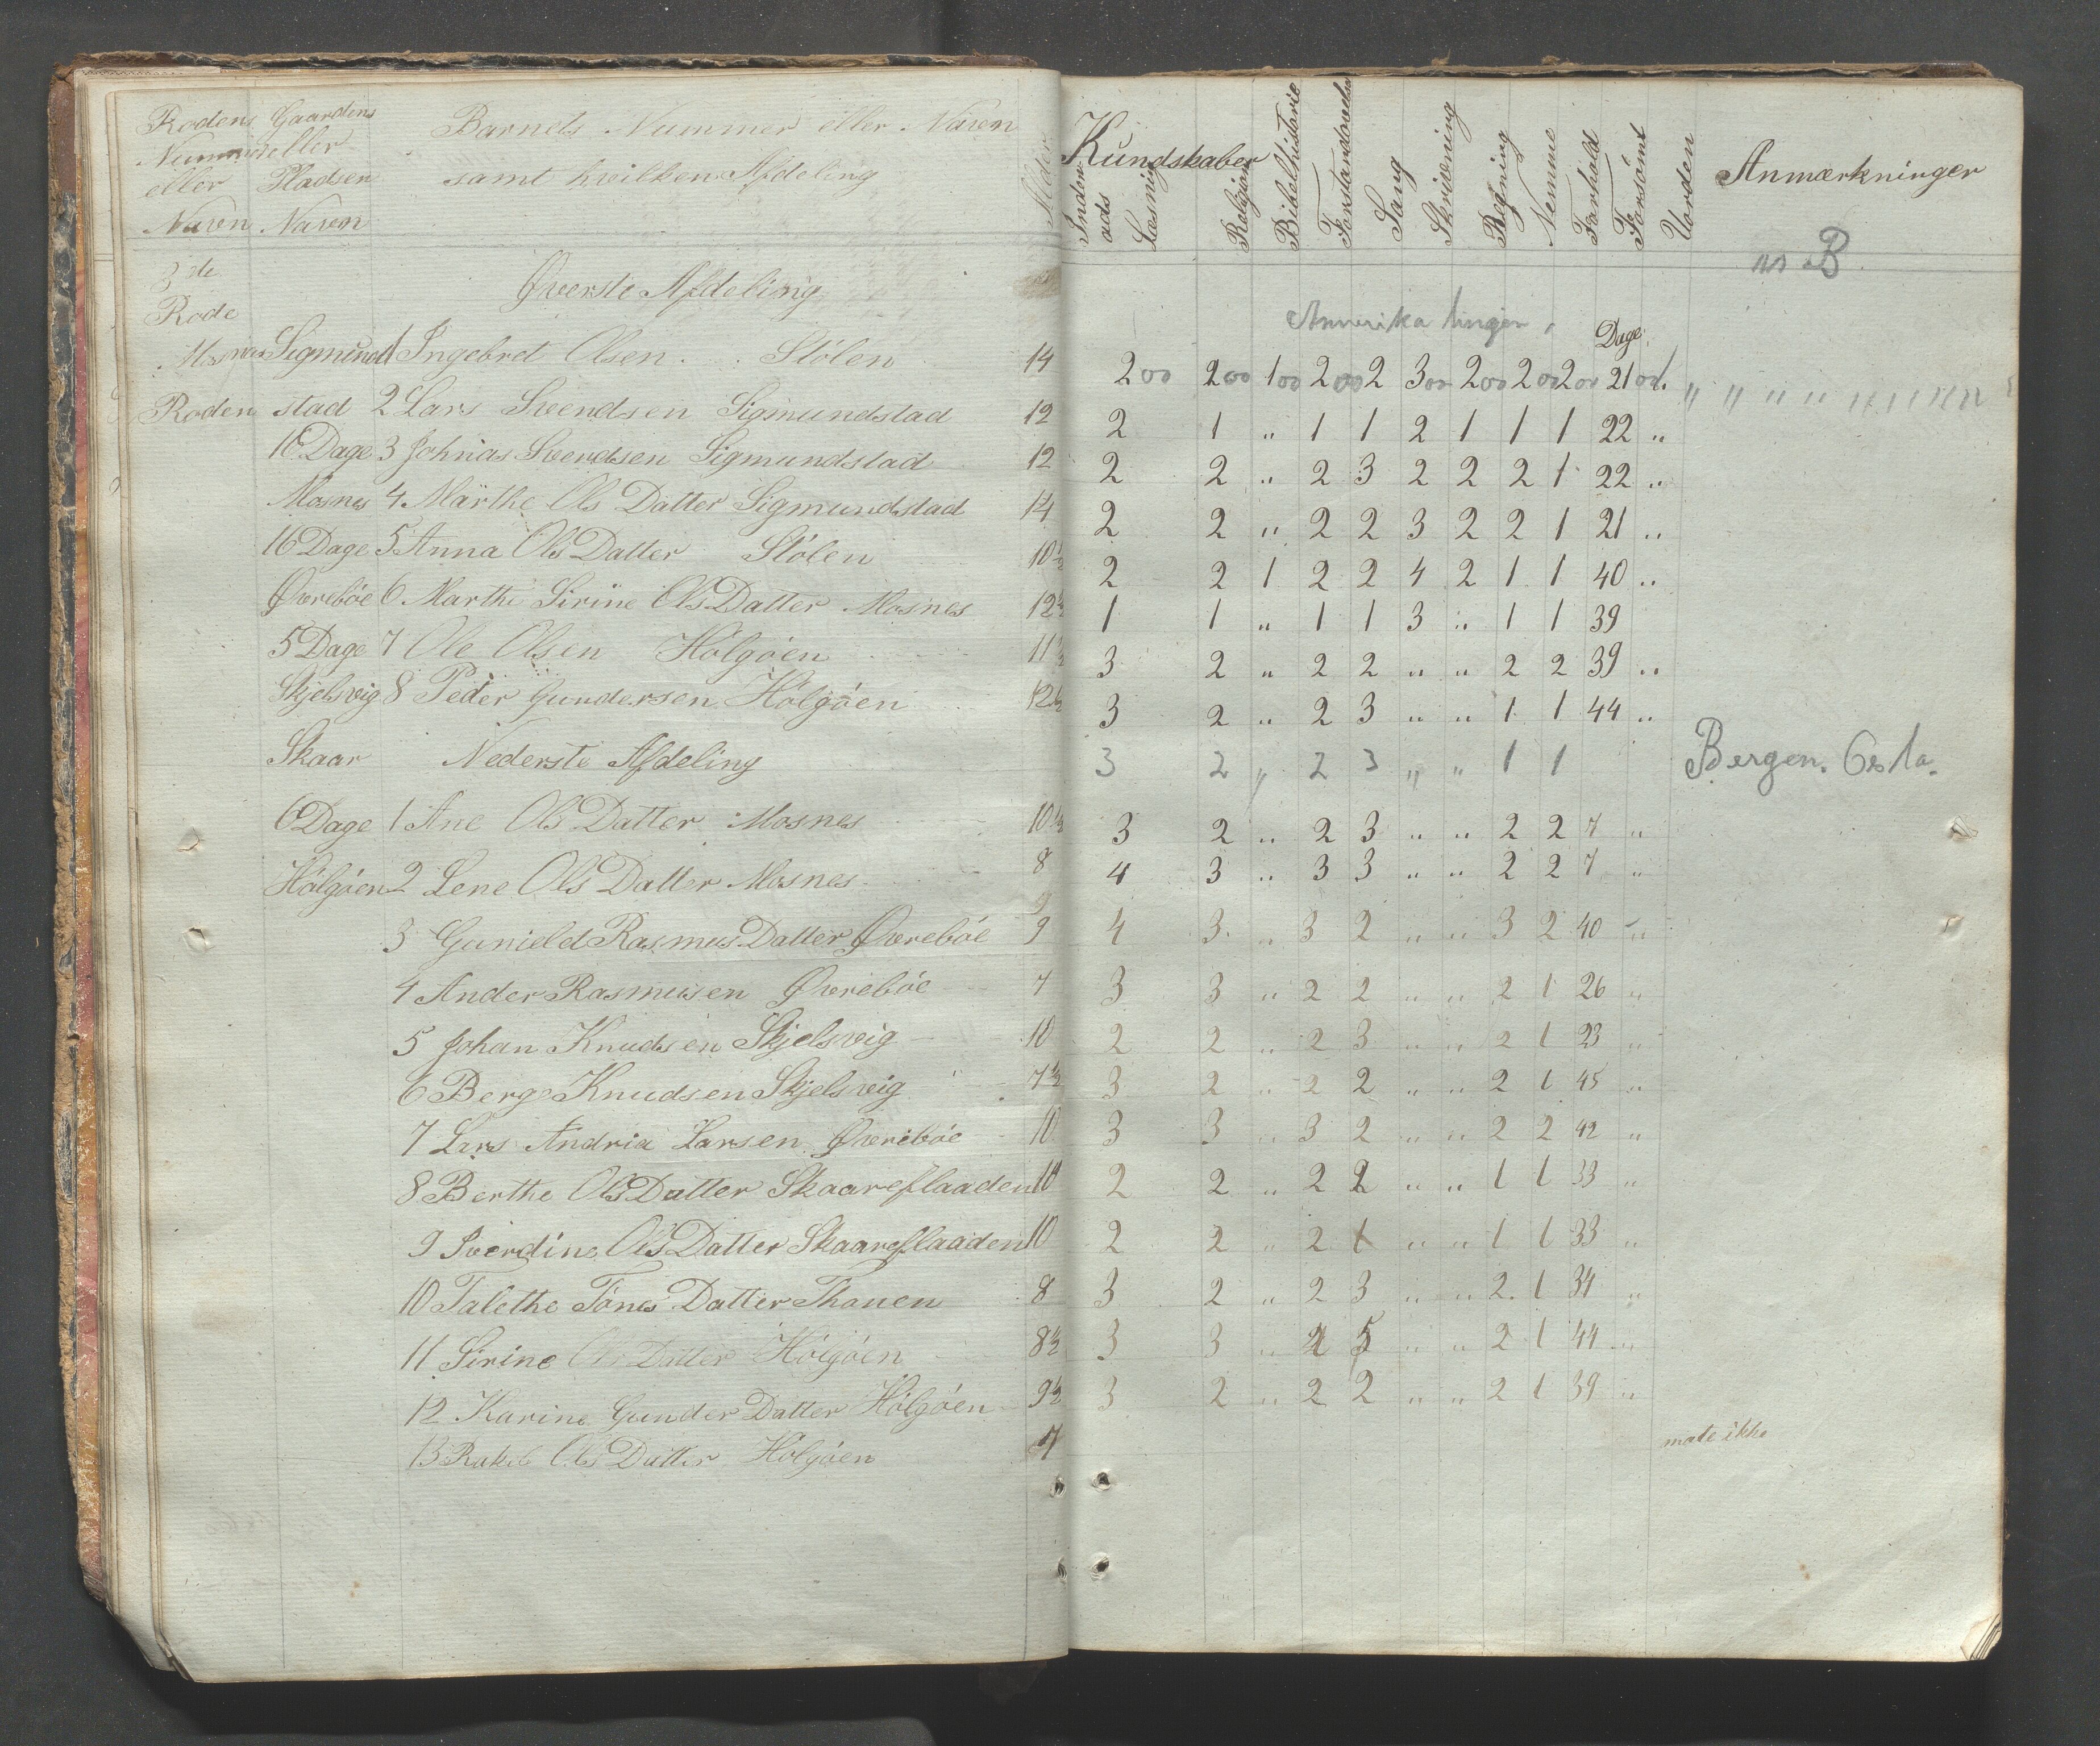 Rodens Gaardens Barnets Nummer eller Naven
Nummer eller
eller Pladsen samt hvilken Afdeling Alder
Naven Naven
Kundskaber
Inden- ads Læsning Religion Bibelhistorie Forstandsøvelse Sang Skrivning Regning Nemme Forhold Forsømt Uorden Anmærkninger
B
3de
Rode Øverste Afdeling
Amerika
Dage
Mosnes Sigmund 1 Ingebret Olsen Stólen 14 2 2 1 2 2 3 2 2 2 21
Roden stad 2 Lars Svendsen Sigmundstad 12 2 1 " 1 1 2 1 1 1 22 "
16 Dage 3 Johnas Svendsen Sigmundstad 12 2 2 " 2 3 2 2 2 1 22 "
Mosnes 4 Märthe Ols Datter Sigmundstad 14 2 2 " 2 2 3 2 2 1 21 "
16 Dage 5 Anna Ols Datter Stólen 10½ 2 2 1 2 2 4 2 1 1 40 "
Øvrebóe 6 Marthe Sirine Ols Datter Mosnes 12½ 1 1 " 1 1 3 " 1 1 39
5 Dage 7 Ole Olsen Hólgóen 11½ 3 2 " 2 2 " " 2 2 39 "
Skjelsvig 8 Peder Gundersen Hólgóen 12½ 3 2 " 2 3 " " 1 1 44 "
Skaar Nederste Afdeling 3 2 " 2 3 " " 1 1 Bergen.
6 Dage 1 Ane Ols Datter Mosnes 10½ 3 2 " 2 3 " " 2 2 7 "
Hólgóen 2 Lene Ols Datter Mosnes 8 4 3 " 3 3 " " 2 2 7 "
9
3 Gunield Rasmus Datter Øvrebóe 9 4 3 " 3 2 " " 3 2 40 "
4 Ander Rasmusen Øvrebóe 7 3 3 " 2 2 " " 2 1 26 "
5 Johan Knudsen Skjelsvig 10 2 2 " 2 3 " " 2 1 23 "
6 Berge Knudsen Skjelsvig 7½ 3 2 " 2 2 " " 2 1 45 "
7 Lars Andria Larsen Øvrebóe 10 3 3 " 3 2 " " 2 2 42 "
8 Berthe Ols Datter Skaareflaaden 10 2 2 " 2 2 " " 1 1 33 "
9 Sverdine Ols Datter Skaareflaaden 10 2 2 " 2 1 " " 1 1 33 "
10 Talethe Tónes Datter Thouen 8 3 2 " 2 3 " " 2 1 34 "
11 Sirine Ols Datter Hólgóen 8½ 3 3 " 2 5 " " 2 1 44 "
12 Karine Gunder Datter Hólgóen 9½ 3 2 " 2 2 " " 2 1 39 "
13 Rakel Ols Datter Hólgóen 7 møte ikke